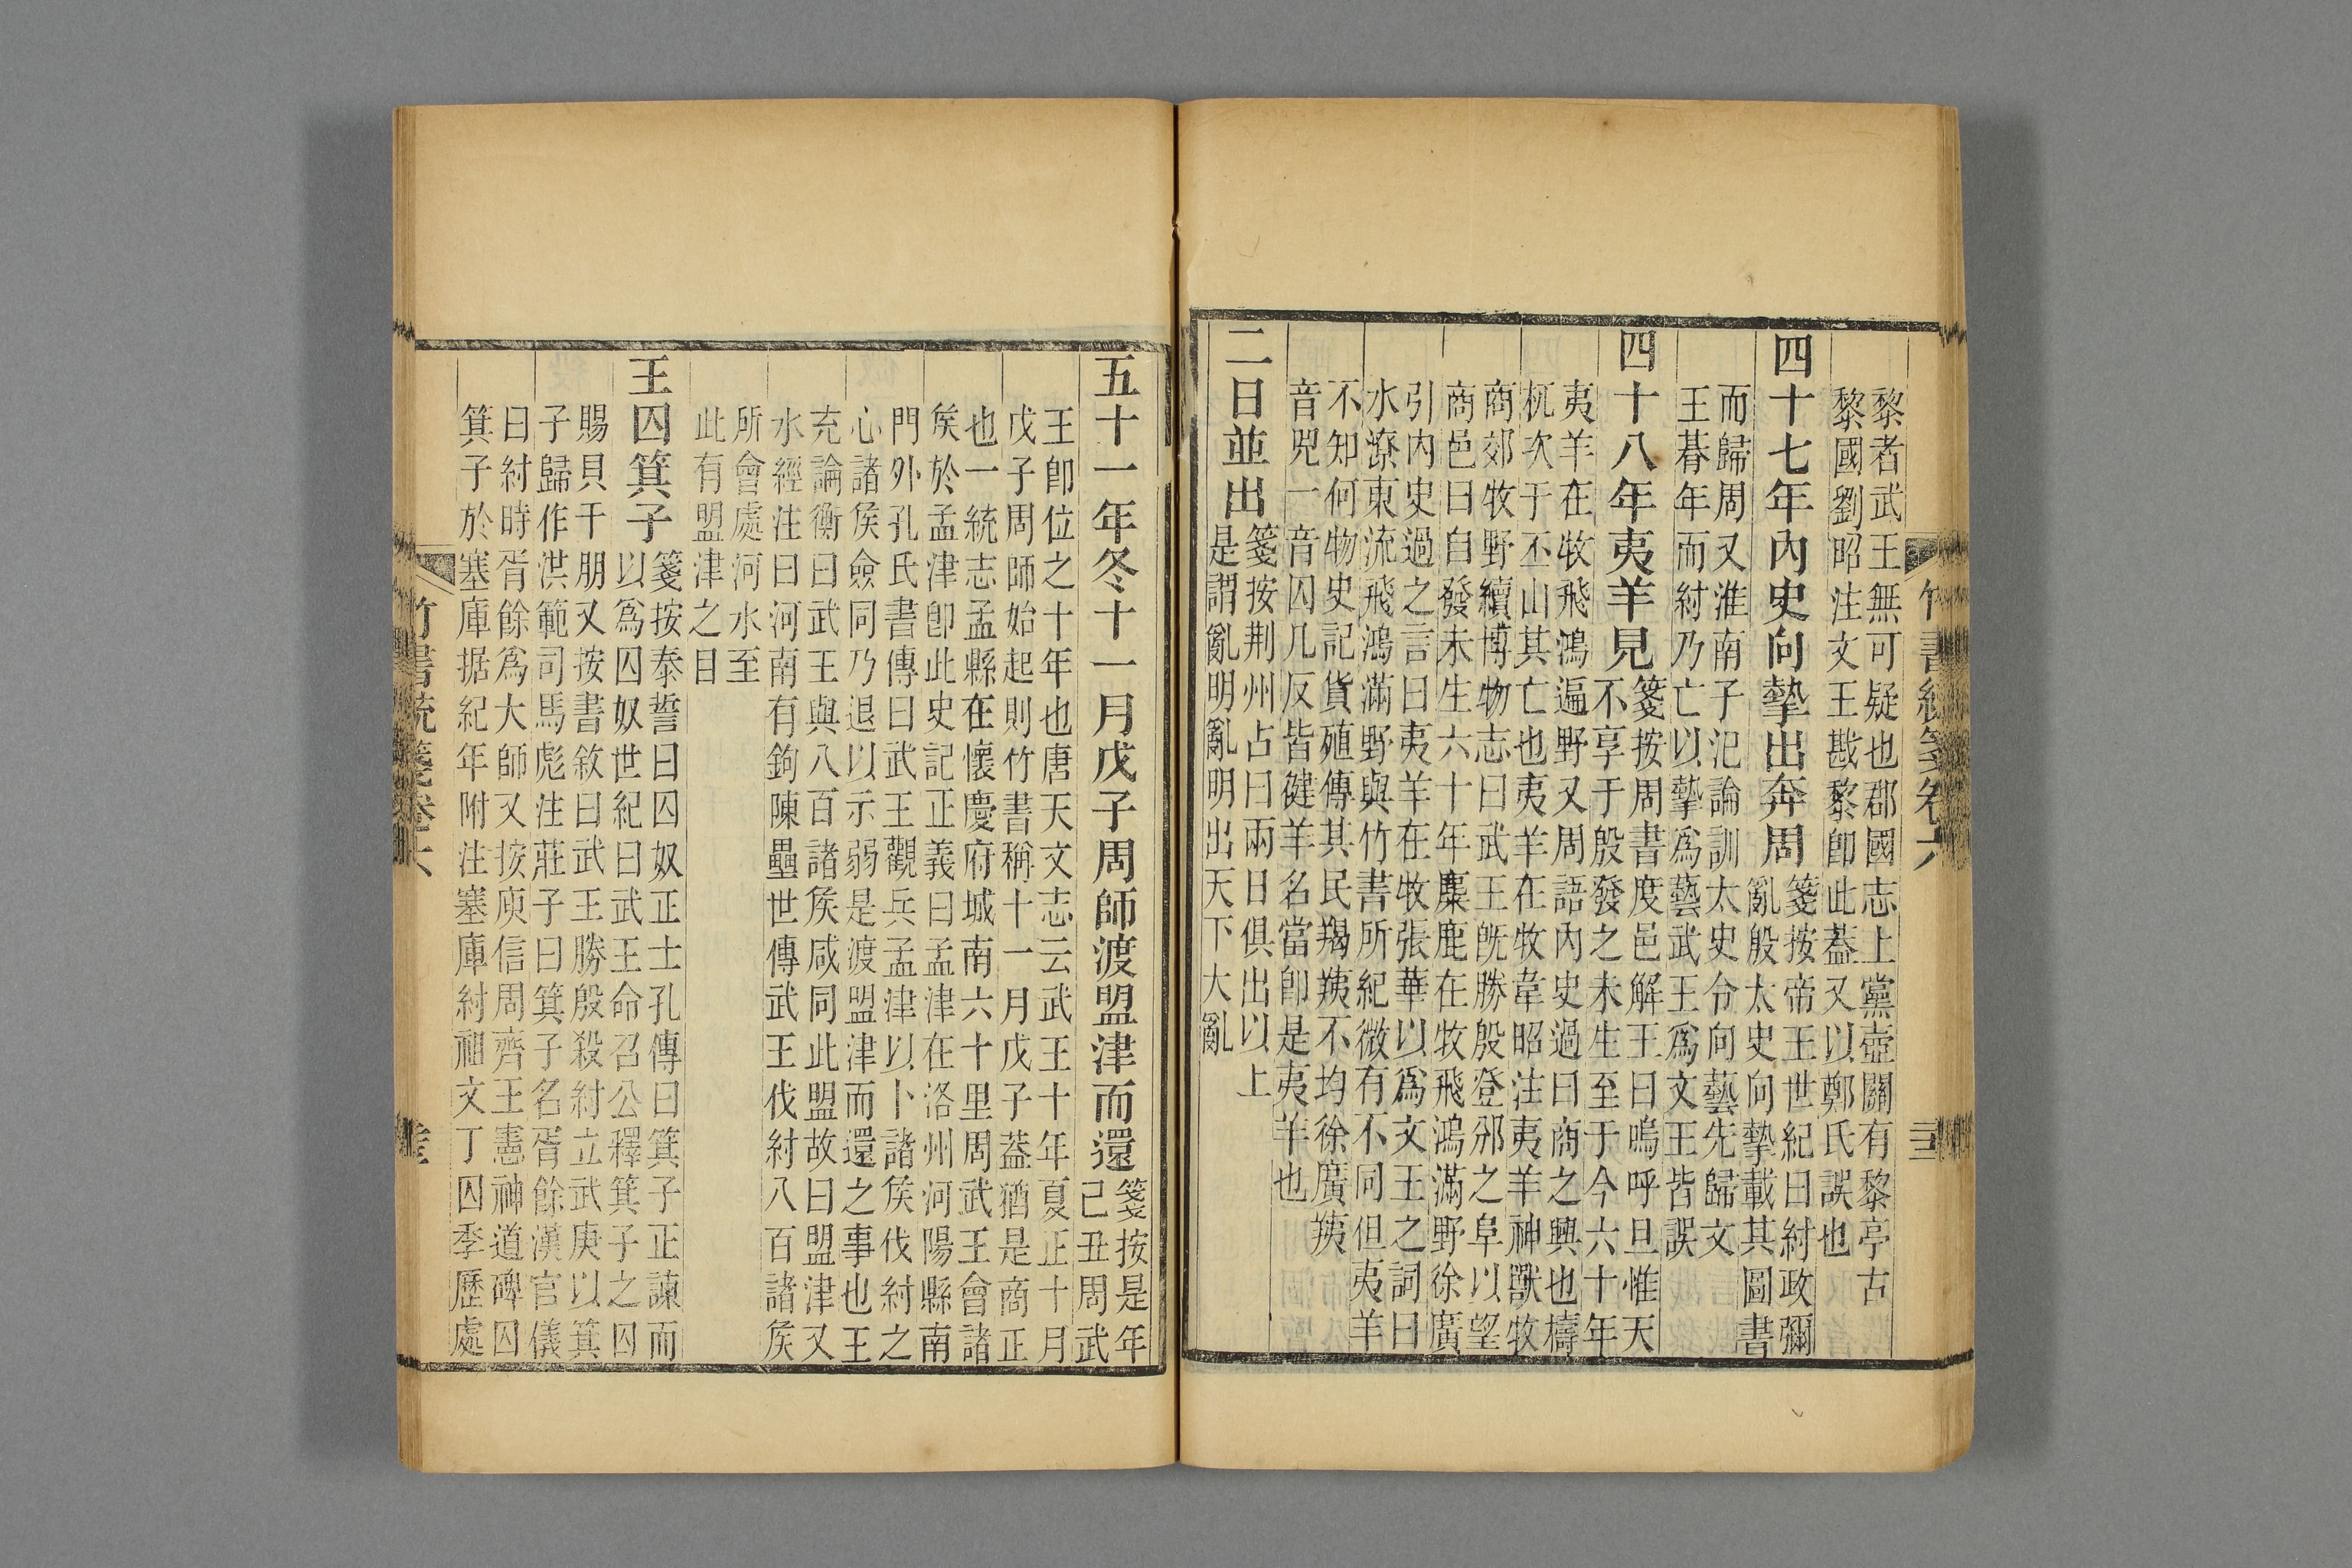 竹書統箋卷六
黎者武王無可疑也郡國志上黨壺關有黎亭古
黎國劉昭注文王戡黎卽此葢又以鄭氏誤也
四十七年內史向摯出奔周箋按帝王世紀曰紂政彌
亂殷太史向摯載其圖書
而歸周又淮南子氾論訓太史令向藝先歸文
王朞年而紂乃亡以摯爲藝武王爲文王皆誤
四十八年夷羊見箋按周書度邑解王曰嗚呼旦惟天
不享于殷發之未生至于今六十年
夷羊在牧飛鴻遍野又周語內史過曰商之興也檮
杌次于丕山其亡也夷羊在牧韋昭注夷羊神獸牧
商郊牧野續博物志曰武王旣勝殷登邠之阜以望
商邑曰自發未生六十年麋鹿在牧飛鴻滿野徐廣
引內史過之言曰夷羊在牧張華以爲文王之詞曰
水潦東流飛鴻滿野與竹書所紀微有不同但夷羊
不知何物史記貨殖傳其民羯羠不均徐廣羠
音兕一音囚几反皆健羊名當卽是夷羊也
二日並出箋按荆州占曰兩日俱出以上
是謂亂明亂明出天下大亂
五十一年冬十一月戊子周師渡盟津而還箋按是年
己丑周武
王卽位之十年也唐天文志云武王十年夏正十月
戊子周師始起則竹書稱十一月戊子葢猶是商正
也一統志孟縣在懷慶府城南六十里周武王會諸
矦於孟津卽此史記正義曰孟津在洛州河陽縣南
門外孔氏書傳曰武王觀兵孟津以卜諸矦伐紂之
心諸矦僉同乃退以示弱是渡盟津而還之事也王
充論衡曰武王與八百諸矦咸同此盟故曰盟津又
水經注曰河南有鉤陳壘世傳武王伐紂八百諸矦
所會處河水至
此有盟津之目
王囚箕子箋按泰誓曰囚奴正士孔傳曰箕子正諫而
以爲囚奴世紀曰武王命召公釋箕子之囚
賜貝千朋又按書敘曰武王勝殷殺紂立武庚以箕
子歸作洪範司馬彪注莊子曰箕子名胥餘漢官儀
曰紂時胥餘爲大師又按庾信周齊王憲神道碑囚
箕子於塞庫据紀年附注塞庫紂祖文丁囚季歷處
竹書統箋卷六